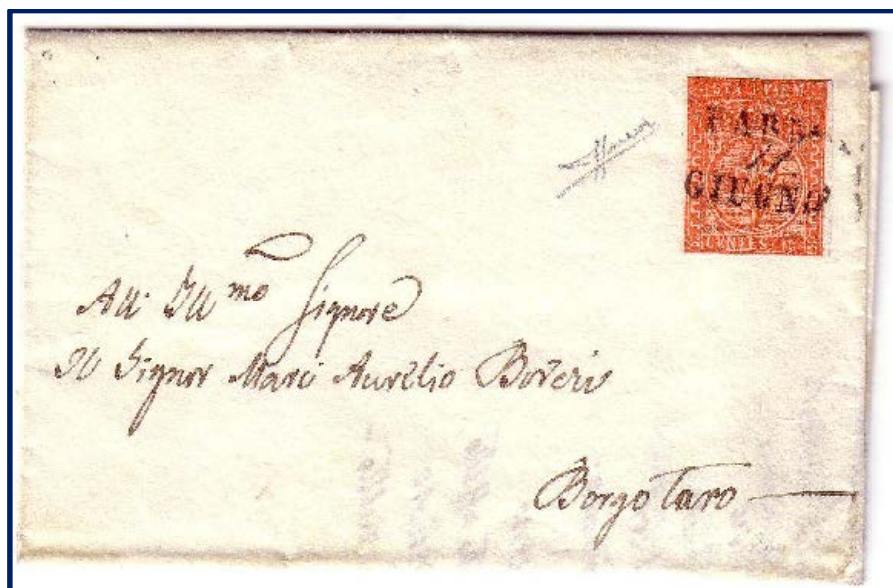 PARM
11
GIUGNO
All' Ill.mo Signore
Il Signor Marc' Aurelio Boveri
Borgotaro